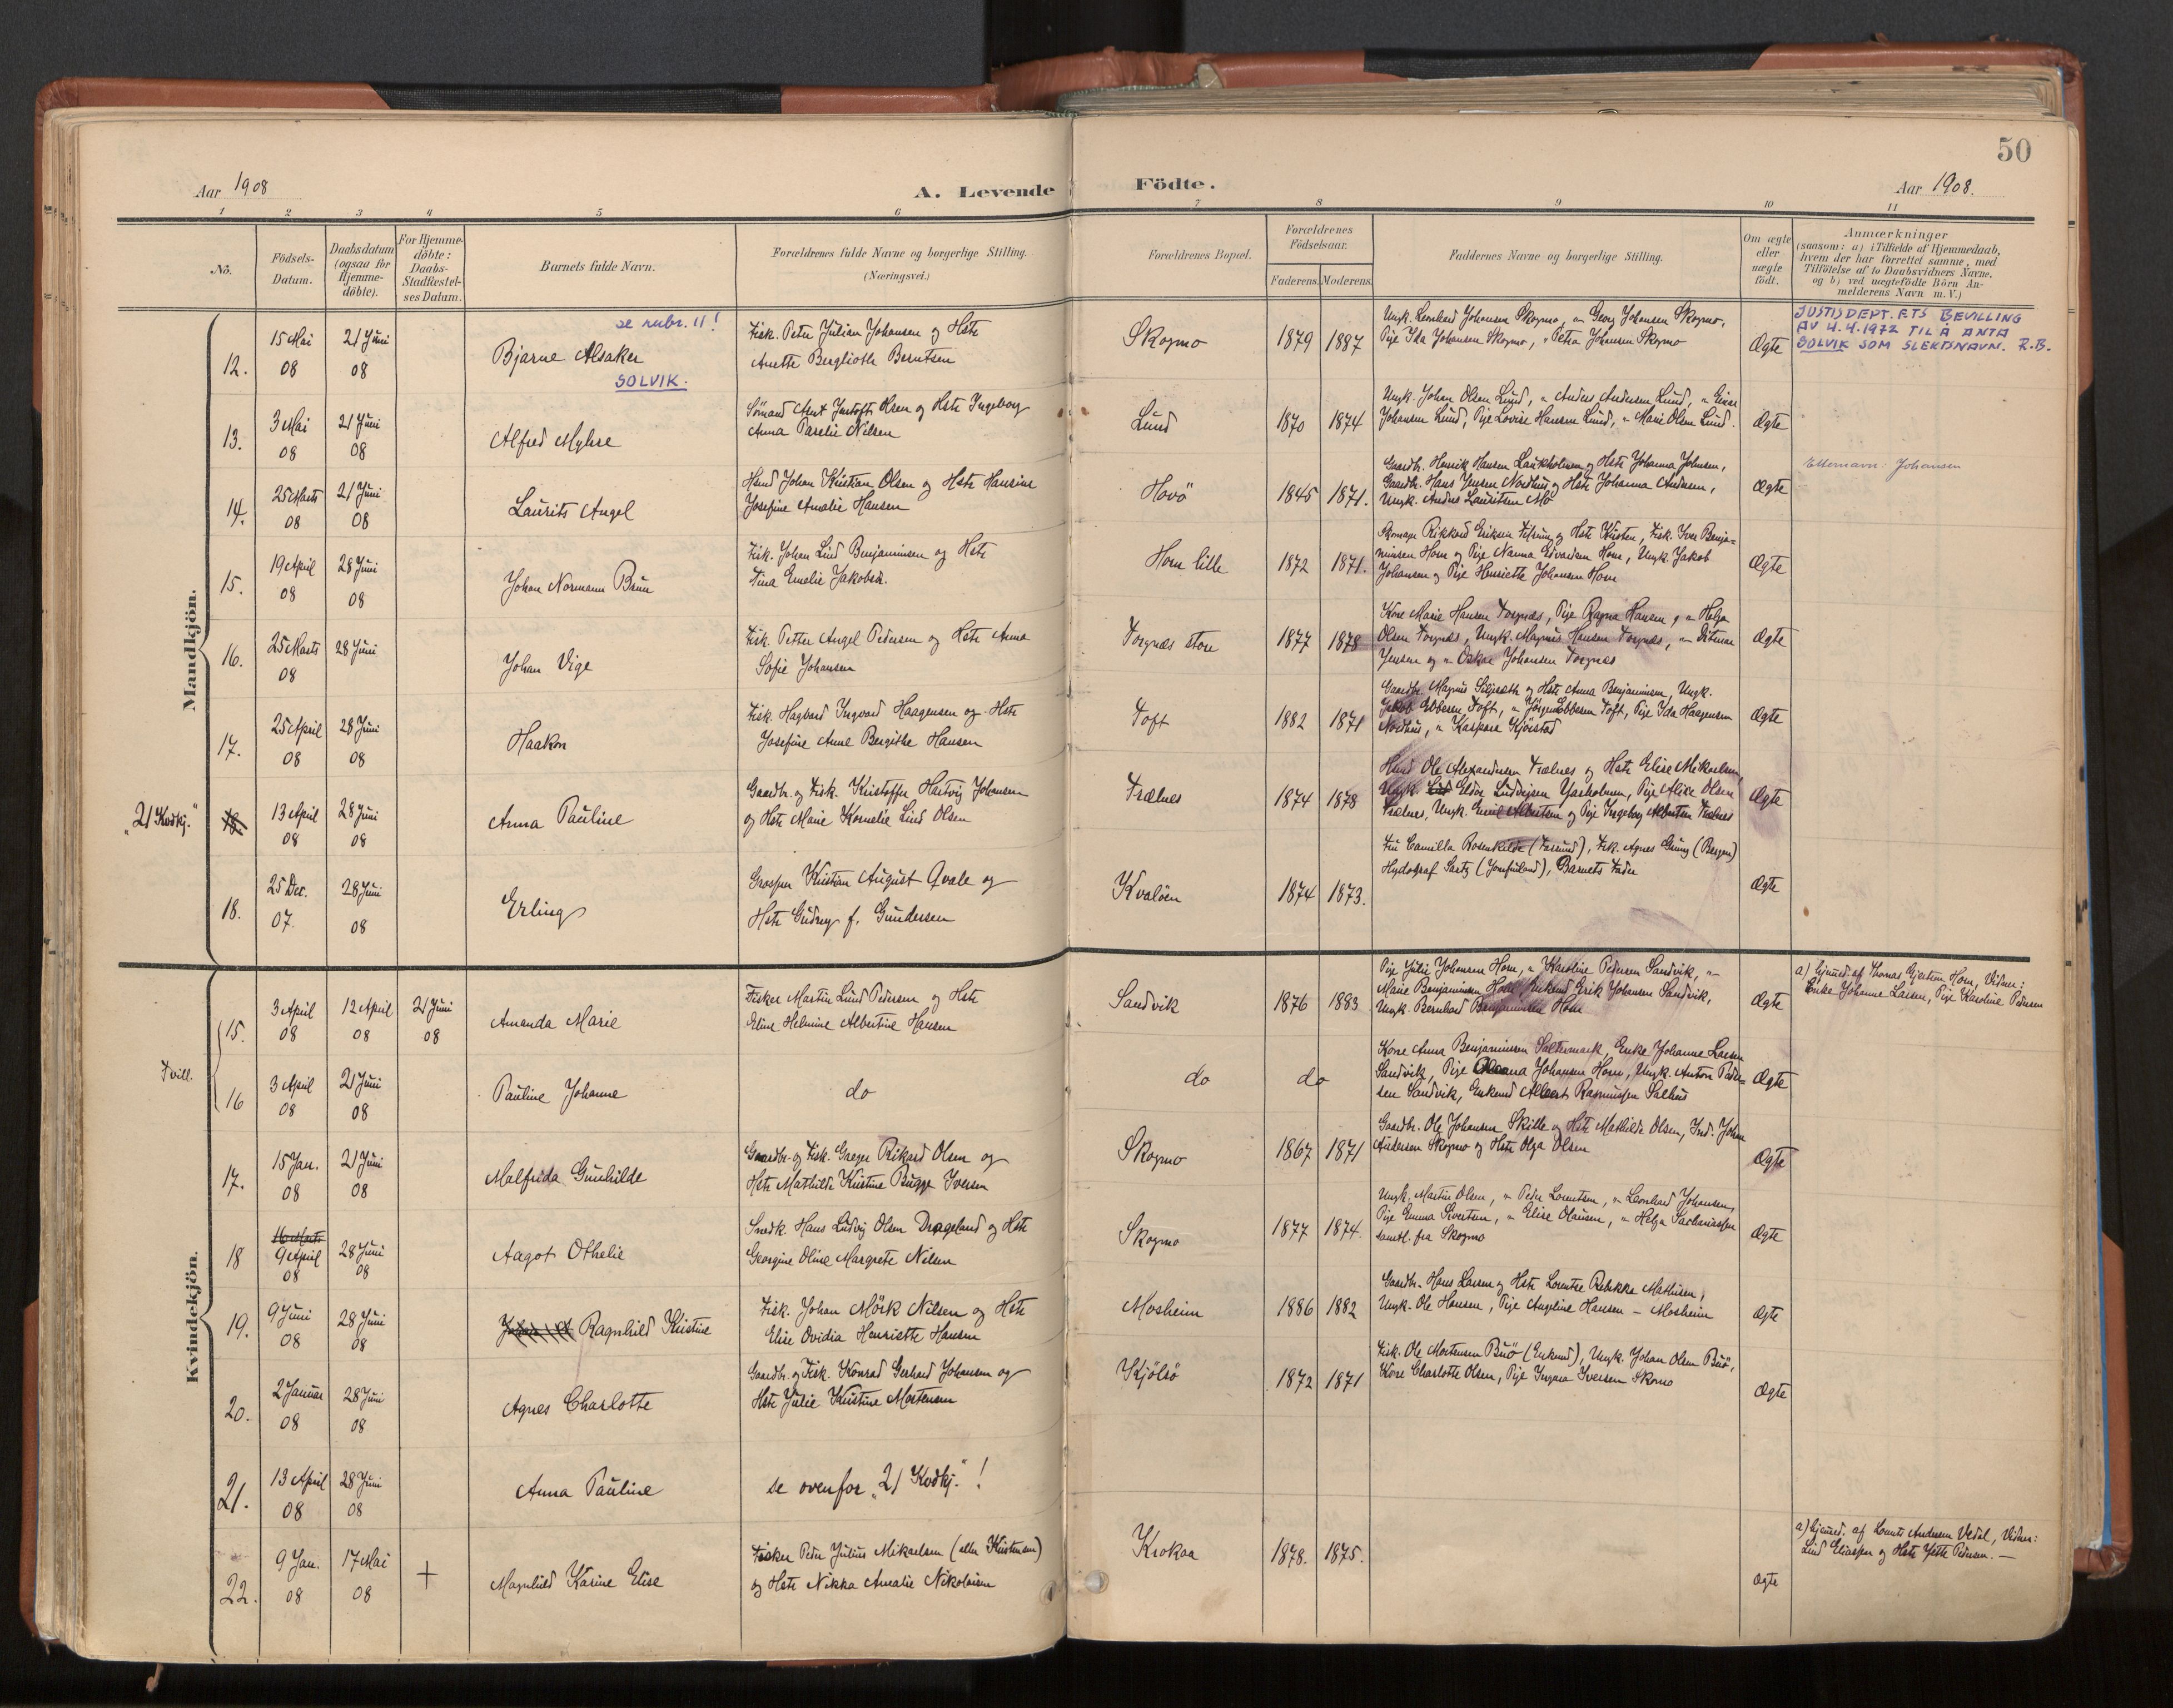 50
Aar 1908
A. Levende Födte.
Aar 1908.
1 2 3 4 5 6 7 8 9 10 11
No.
Födsels-Datum.
Daabsdatum (ogsaa for Hjemme-döbte).
For Hjemme-döbte: Daabs-Stadfæstel-ses Datum.
Barnets fulde Navn.
Forældrenes fulde Navne og borgerlige Stilling.
(Næringsvei.)
Forældrenes Bopæl.
Forældrenes Födselsaar.
Faderens. Moderens.
Faddernes Navne og borgerlige Stilling.
Om ægte eller uægte födt.
Anmærkninger
(saasom: a) i Tilfælde af Hjemmedaab,
hvem der har forrettet samme, med
Tilföielse af to Daabsvidners Navne.
og b) ved uægtefödte Börn An-
melderens Navn m. V.)
Mandkjön.
12. 15 Mai 08 21 Juni 08
se rubr. 11!
Bjarne Alsaker
SOLVIK.
Fisk. Peter Julian Johansen og Hstr
Anette Bergliothe Berntsen
Skogmo 1879 1887
Ungk. Leonhard Johansen Skogmo, „ Georg Johansen Skogmo,
Pige Ida Johansen Skogmo, „ Petra Johansen Skogmo
Ægte
JUSTISDEPT. ETS BEVILLING
AV 4.4.1972 TIL Å ANTA
SOLVIK SOM SLEKTSNAVN. R.B.
13. 3 Mai 08 21 Juni 08
Alfred Myhre
Sömand Arnt Olsen og Hstr Ingeborg
Anna Parelie Nilsen
Lund 1870 1874
Ungk. Johan Olsen Lund, „ Anders Andersen Lund, „ Einar
Johansen Lund, Pige Lovise Hansen Lund, „ Marie Olsen Lund.
Ægte
14. 25 Marts 08 21 Juni 08
Laurits Angel
Hmd Johan Kristian Olsen og Hstr Hansine
Josefine Amalie Hansen
Hovö 1845 1871.
Gaardbr. Henrik Hansen Laukholmen og Hstr Johanna Johnsen,
Gaardbr. Hans Jensen Nordhus og Hstr Johanna Andersen,
Ungk. Anders Lauritsen Mo
Ægte
Etternavn: Johansen
15. 19 April 08 28 Juni 08
Johan Normann Brun
Fisk. Johan Lind Benjaminsen og Hstr
Tina Emelie Jakobsdr.
Horn lille 1872 1871.
Skomager Rikkard Eriksen og Hstr Kirsten, Fisk. Iver Benja-
minsen Horn og Pige Nanna Edvardsen Horn, Ungk. Jakob
Johansen og Pige Henriette Johansen Horn
Ægte
16. 25 Marts 08 28 Juni
Johan Vige
Fisk. Petter Angel Pedersen og Hstr Anna
Sofie Johansen
Torgnes store 1877 1878
Kone Marie Hansen Torgnæs, Pige Ragna Hansen, „ Helga
Olsen Torgnæs, Ungk. Magnus Hansen Torgnæs, „ Ditman
Jensen og „ Oskar Johansen Torgnæs
Ægte
17. 25 April 08 28 Juni 08
Haakon
Fisk. Hagbard Ingvard Haagensen og Hstr
Josefine Anne Bergithe Hansen
Toft 1882 1871
Gaardbr. Magnus Siljeseth og Hstr Anna Benjaminsen, Ungk.
Jakob Ebbesen Toft, „ Jörgen Ebbesen Toft, Pige Ida Haagensen
Nordhus, „ Kaspara Kjörstad
Ægte
„21 Kvdkj." 18. 13 April 08 28 Juni 08
Anna Pauline
Gaardbr. og Fisk. Kristoffer Hartvig Johansen
og Hstr Marie Kornelie Lind Olsen
Trælnes 1874 1878
Hmd Ole Alexandersen Trælnes og Hstr Elise Mikaelsen,
Ungk. Eldor Ludvigsen Yarholmen, Pige Alice Olsen
Trælnes, Ungk. Emil Albertsen og Pige Ingeborg Albertsen Trælnes
Ægte
18. 25 Dec. 07. 28 Juni 08
Erling
Grosser Kristian August Qvale og
Hstr Gudrun f. Gundersen
Kvalöen 1874 1873.
Fru Camilla Rosenkilde (Farsund), Frk. Agnes Grung (Bergen)
Hydograf Gartz (Jomfruland), Barnets Fader
Ægte
Kvindekjön.
Tvill.
15. 3 April 08 12 April 08 21 Juni 08
Amanda Marie
Fisker Martin Lind Pedersen og Hstr
Eline Helmine Albertine Hansen
Sandvik 1876 1883
Pige Julie Johansen Horn, „ Karoline Pedersen Sandvik, „
Marie Benjaminsen Horn, Enkemd Erik Johansen Sandvik,
Ungk. Bernhard Benjaminsen Horn
Ægte
a) Hjemmed. af Thomas Gjertsen Horn, Vidner:
Enke Johanne Larsen, Pige Karoline Pedersen
16 3 April 08 21 Juni 08
Pauline Johanne
do
do do
Kone Anna Benjaminsen Saltermark, Enke Johanne Larsen
Sandvik, Pige Oleana Johansen Horn, Ungk. Anton Peder-
sen Sandvik, Enkemd Albert Rasmussen Salhus
Ægte
17. 15 Jan. 08 21 Juni 08
Malfrida Gunhilde
Gaardbr. og Fisk. Greger Rikard Olsen og
Hstr Mathilde Kristine Bugge Iversen
Skogmo 1867 1871
Gaardbr. Ole Johansen Skille og Hstr Mathilde Olsen, Ind. Johan
Andersen Skogmo og Hstr Olga Olsen
Ægte
18 16 Marts 9 April 08 28 Juni 08
Aagot Othelie
Snedk. Hans Ludvig Olsen Drageland og Hstr
Georgine Oline Margrete Nilsen
Skogmo 1877 1874.
Ungk. Martin Olsen, „ Peder Lorentsen, „ Leonhard Johansen,
Pige Emma Sivertsen, „ Elise Olausen, „ Helga Sachariassen
samtl. fra Skogmo
Ægte
19. 9 Juni 08 28 Juni 08
Ragnhild Kristine
Fisk. Johan Mörk Nilsen og Hstr
Elise Ovidia Henriette Hansen
Mosheim 1886 1882
Gaardbr. Hans Larsen og Hstr Lorentse Rebekka Mathisen,
Ungk. Ole Hansen, Pige Angeline Hansen – Mosheim
Ægte
20. 2 Januar 08 28 Juni 08
Agnes Charlotte
Gaardbr. og Fisk. Konrad Gerhard Johansen og
Hstr Julie Kristine Mortensen
Kjölsö 1872 1871
Fisk. Ole Mortensen Buö (Enkemd), Ungk. Johan Olsen Buö,
Kone Charlotte Olsen, Pige Ingvara Iversen Skomo
Ægte
21. 13 April 08 28 Juni 08
Anna Pauline
se ovenfor „21 Kvdkj."!
22. 9 Jan. 08 17 Mai 08 +
Magnhild Karine Elise
Fisker Peder Julius Mikaelsen (eller Kristensen)
og Hstr Nikka Amalie Nikolaisen
Krokaa 1878. 1875.
Ægte
a) Hjemmed. af Lorents Andersen Vedal, Vidner:
Lind Eliassen og Hstr Jette Pedersen. –